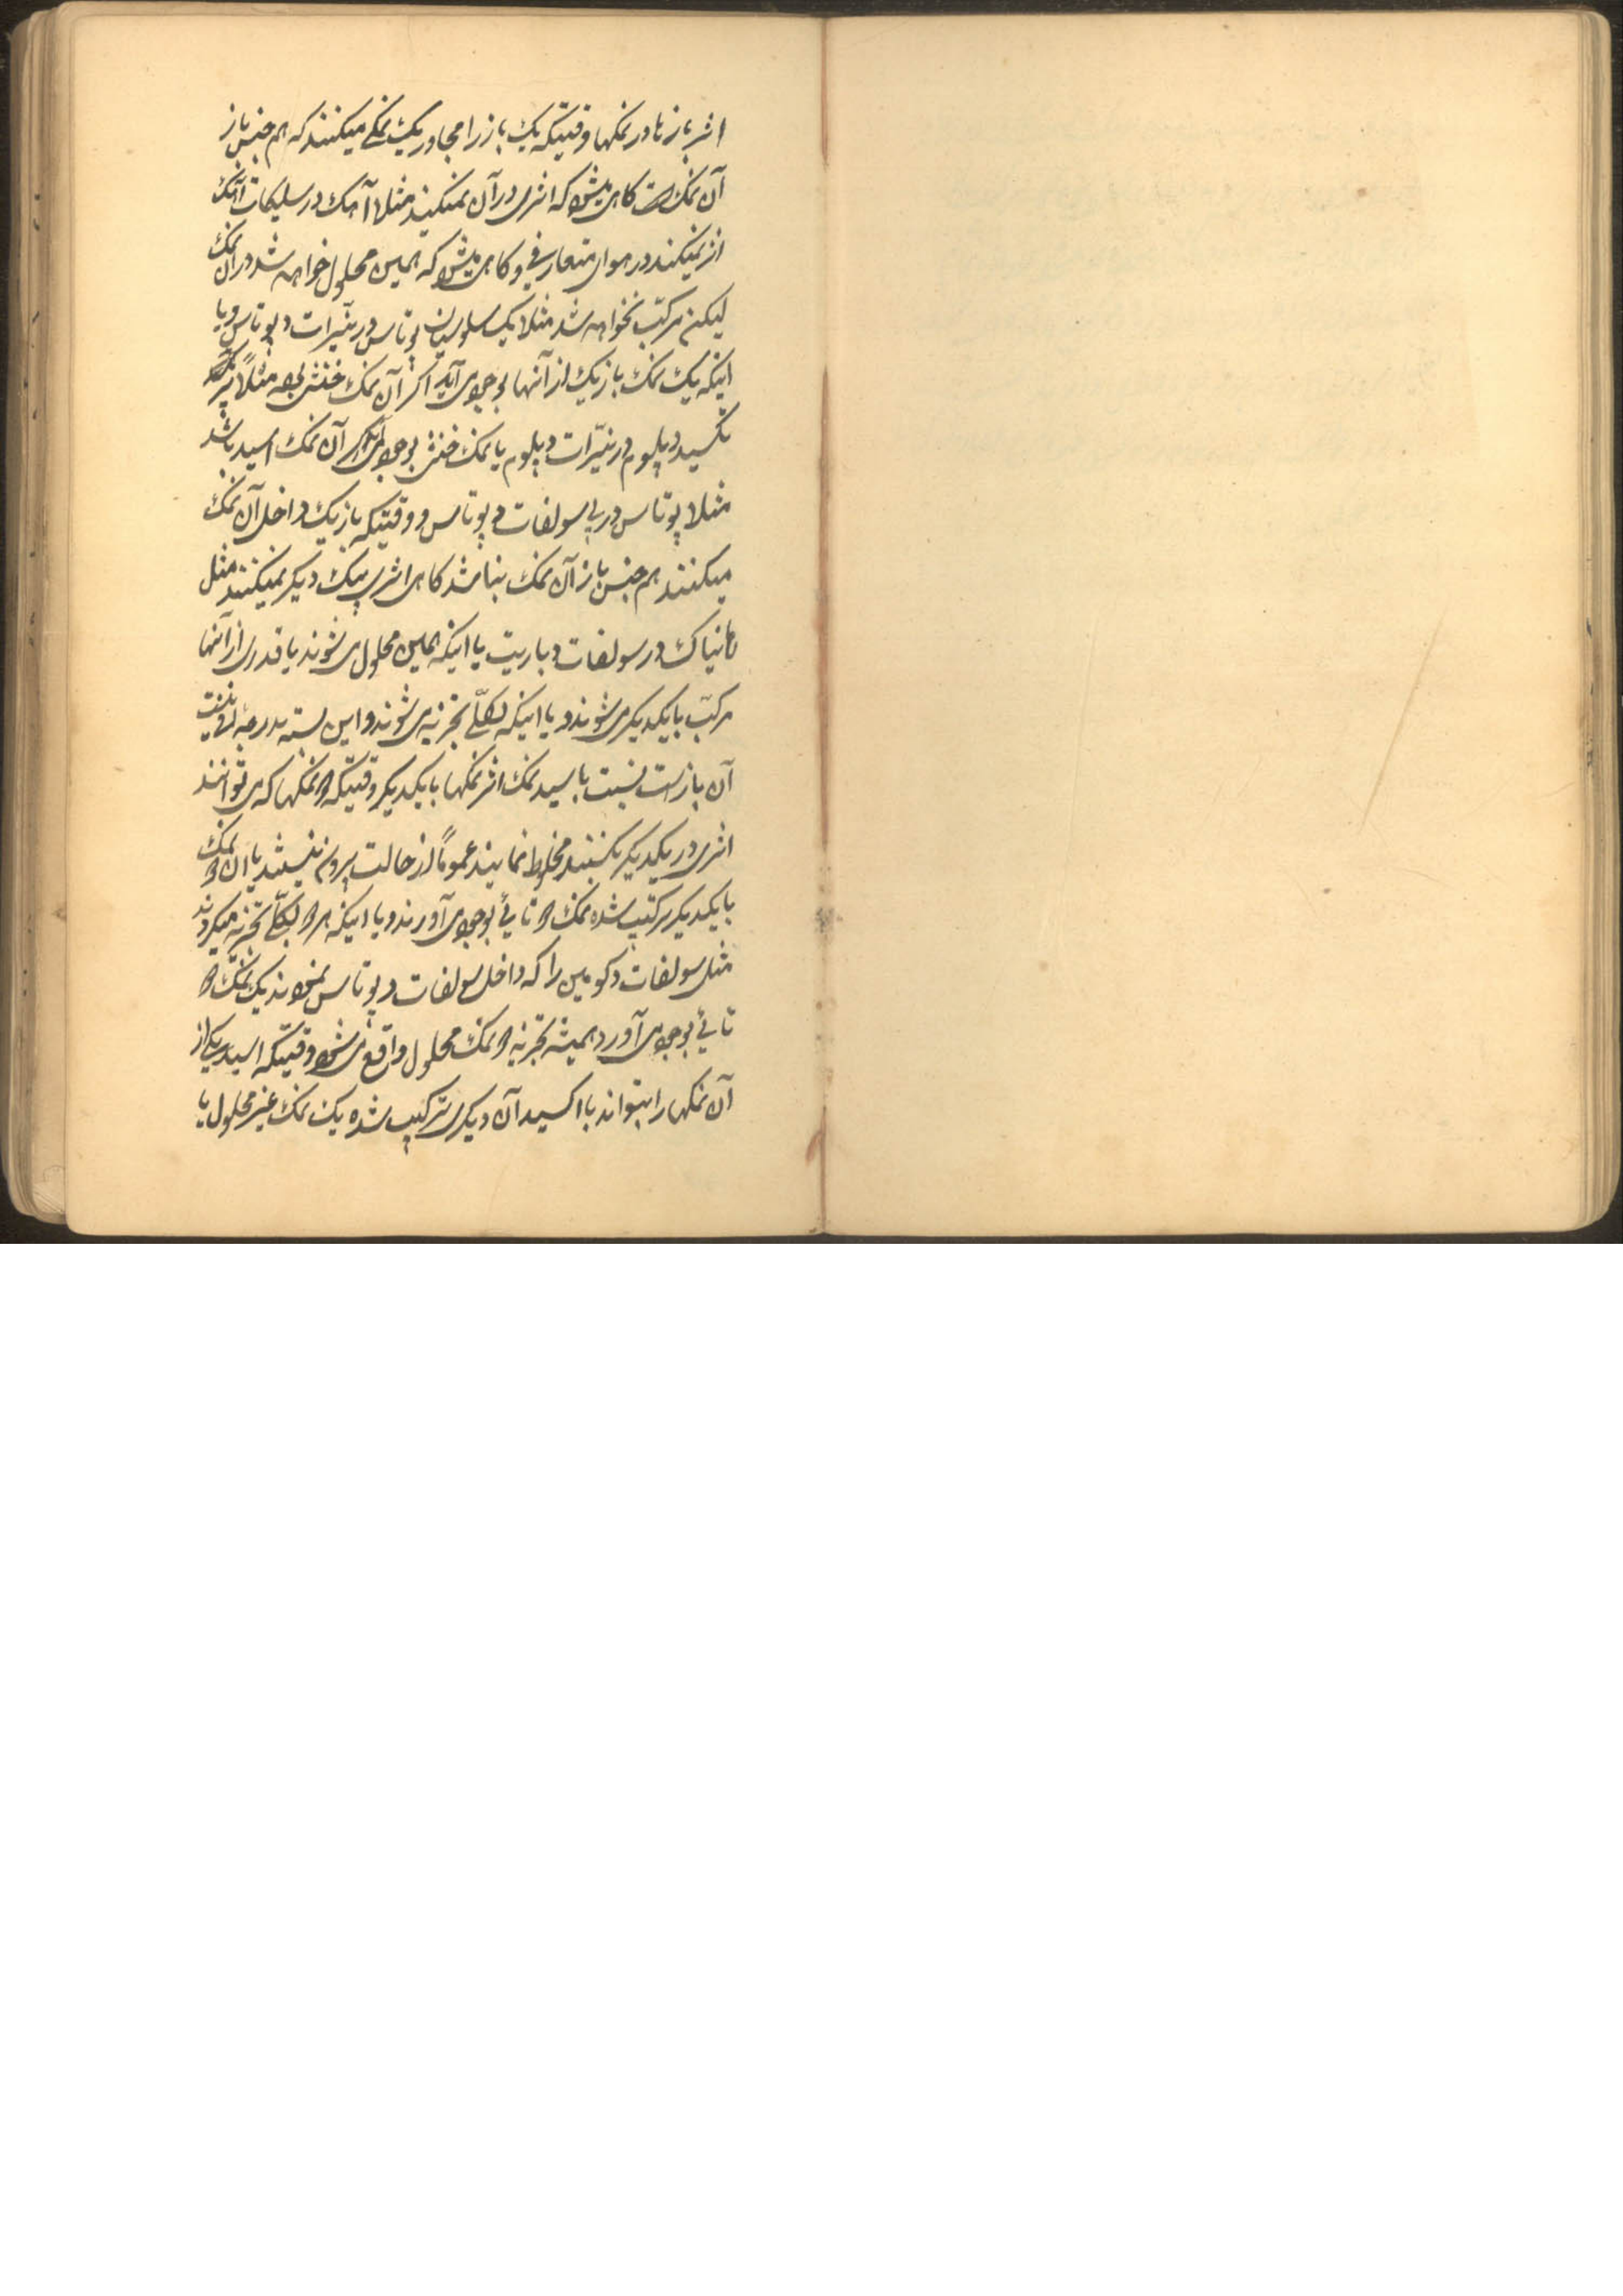 اثر بازها در نمکها وقتیکه یک باز را مجاور یک نمکی میکنند که هم جنس باز
آن نمک است گاهی میشود که اثری در آن نمیکند مثلا آهک در سلیکات آهک
اثر نمیکند در هوای متعارفی و گاهی میشود که همین محلول خواهد شد در آن نمک
لیکن مرکّب نخواهد شد مثلا یک پوتاس در نیترات د پوتاس و یا
اینکه یک نمک بازیک از آنها بوجود می آید اگر آن نمک خنثی بوده مثلاً
اکسید د پلوم در نیترات د پلوم یا نمک خنثی بوجود می آید اگر آن نمک اسید باشد
مثلا پوتاس در بی سولفات د پوتاس و وقتیکه بازیک داخل آن نمک
میکنند هم جنس باز آن نمک نباشد گاهی اثری بیک دیگر نمیکنند مثل
در سولفات د باریت یا اینکه همین محلول می شوند یا قدری از آنها
مرکّب با یکدیگر می شوند و یا اینکه بکلّی تجزیه می شوند و این بسته بدرجه
آن باز است نسبت باسید نمک اثر نمکها با یکدیگر وقتیکه دو نمکها که می توانند
اثری در یکدیگر بکنند مخلوط نمایند عموماً از حالت بیرون نیستند یا آن دو نمک
با یکدیگر مرکّب شده نمک دو تائی بوجود می آورند و یا اینکه هر دو بکلّی تجزیه میگردند
مثل سولفات د کومین را که داخل سولفات د پوتاس نمودند یک نمک دو
تائی بوجود می آورد همیشه تجزیه دو نمک محلول واقع می شود وقتیکه اسید یکی از
آن نمکها را بتواند با اکسید آن دیگری ترکیب شده یک نمک غیر محلول یا